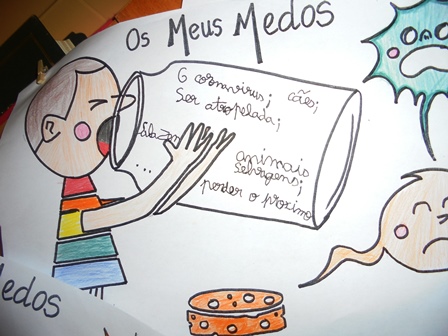 Os Meus Medos
O coronavirus; cães;
Ser atropelada;
falazar
...
animais
selvagens;
perder o proximo
Medos